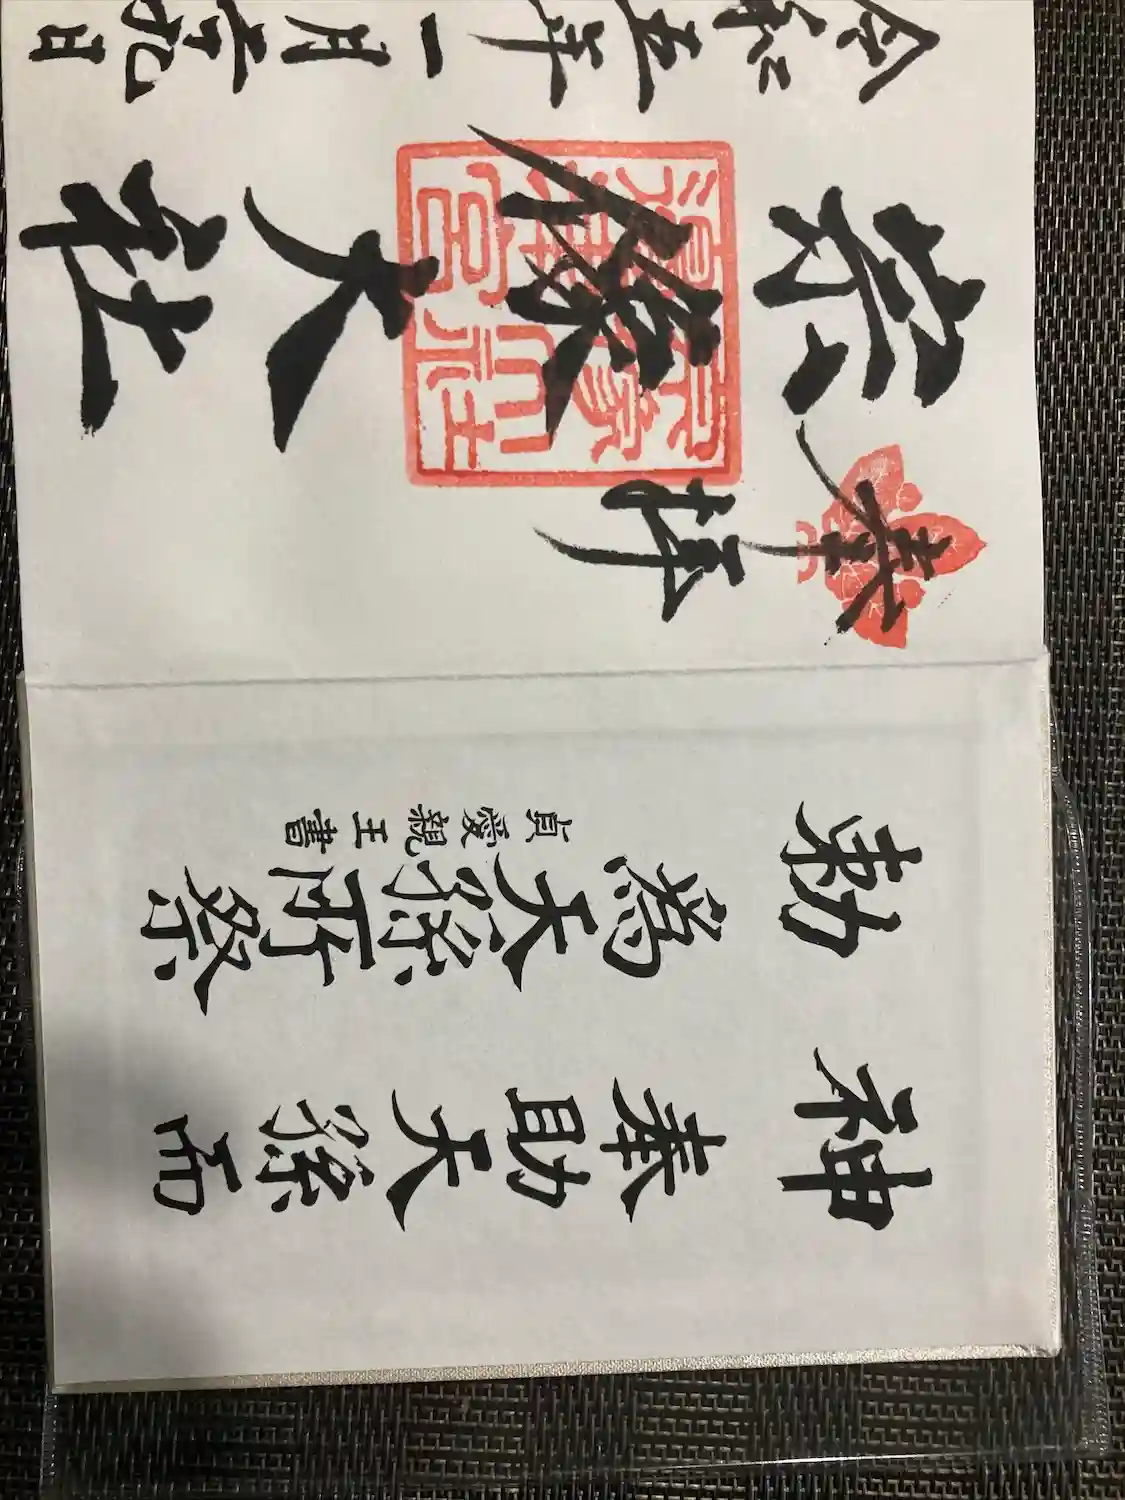 神勅
奉助天孫而
為天孫所祭
貞愛親王書
奉拝
宗像大社
令和五年一月日